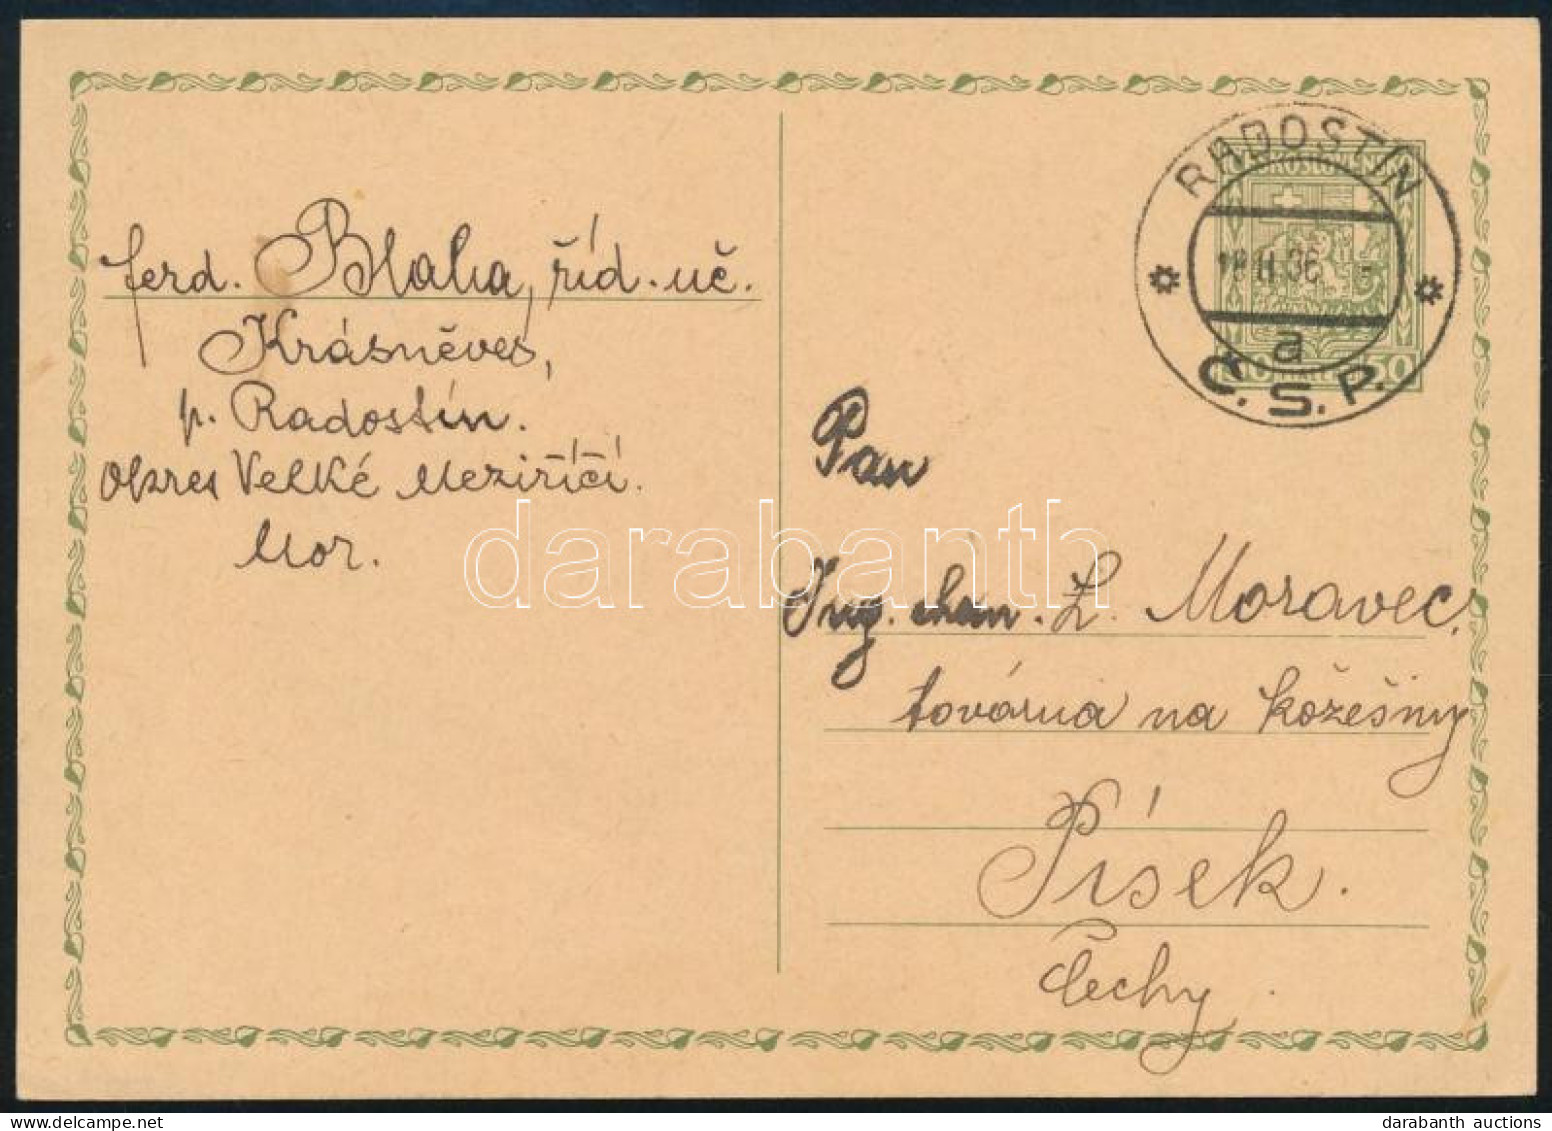 RADOSTÍN
ČESKOSLOVENSKO
18.II.36
a
Č.S.P.
50 50
ferd. Blaha, říd. uč.
Krásněves,
p. Radostín.
Okres Velké Meziříčí.
Mor.
Pan
Ing. chem. Z. Moravec,
továrna na kožešiny
Písek.
Čechy.
darabanth
darabanth auctions